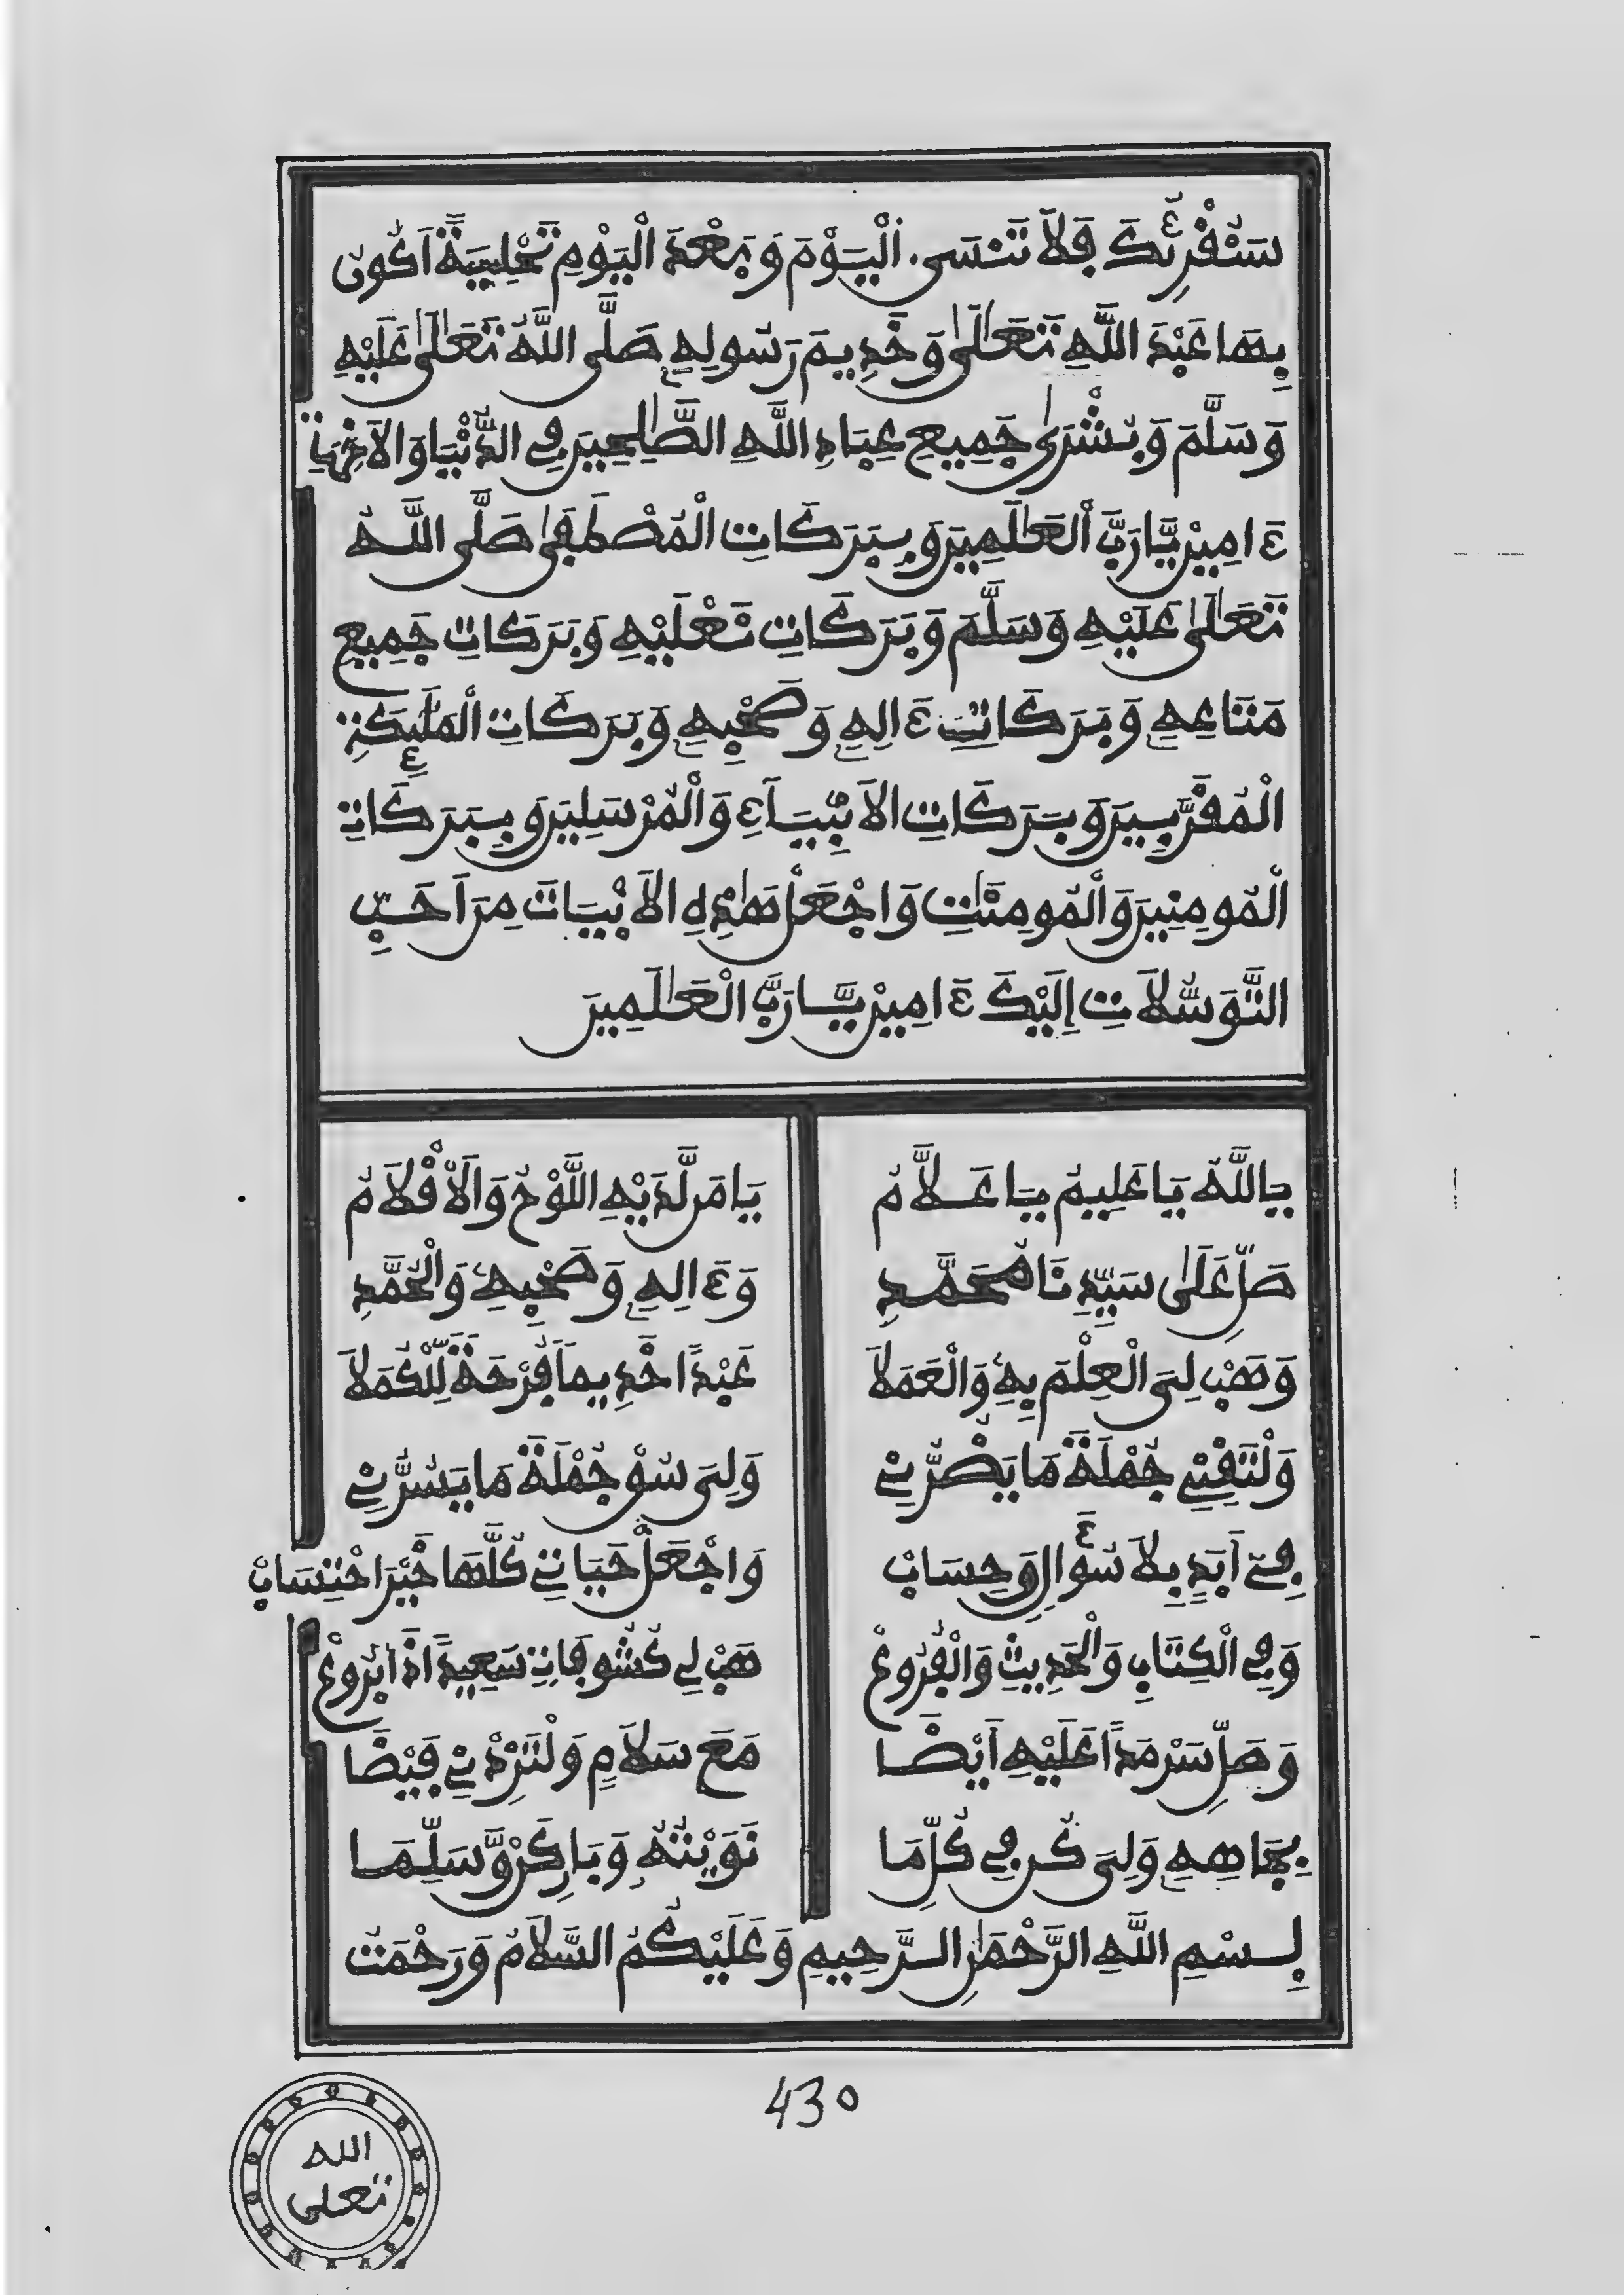 سَنُقْرِئُكَ فَلَا تَنْسَى. اَلْيَوْمَ وَبَعْدَ الْيَوْمِ تَحْلِيَةً اَكُونُ
بِهَا عَبْدَ اللَّهِ تَعَالَىٰ وَخَدِيمَ رَسُولِهِ صَلَّى اللَّهُ تَعَالَىٰ عَلَيْهِ
وَسَلَّمَ وَبُشْرَىٰ جَمِيعِ عِبَادِ اللَّهِ الصَّٰلِحِينَ فِي الدُّنْيَا وَالْآخِرَةِ
ءَامِينْ يَّارَبَّ الْعَٰلَمِينَ وَبِبَرَكَاتِ الْمُصْطَفَىٰ صَلَّى اللَّهُ
تَعَالَىٰ عَلَيْهِ وَسَلَّمَ وَبَرَكَاتِ نَعْلَيْهِ وَبَرَكَاتِ جَمِيعِ
مَتَاعِهِ وَبَرَكَاتِ ءَالِهِ وَصَحْبِهِ وَبَرَكَاتِ الْمَلَٰئِكَةِ
الْمُقَرَّبِينَ وَبَرَكَاتِ الْأَنْبِيَاءِ وَالْمُرْسَلِينَ وَبِبَرَكَاتِ
الْمُومِنِينَ وَالْمُومِنَٰتِ وَاجْعَلْ هَٰذِهِ الْأَبْيَاتَ مِنَ اَحَبِّ
التَّوَسُّلَاتِ إِلَيْكَ ءَامِينْ يَّارَبَّ الْعَٰلَمِينَ
يَااللَّهُ يَا عَلِيمُ يَا عَلَّامُ يَا مَن لَّدَيْهِ اللَّوْحُ وَالْأَقْلَامُ
صَلِّ عَلَىٰ سَيِّدِنَا مُحَمَّدِ وَءَالِهِ وَصَحْبِهِ وَالْحَمَّدِ
وَهَبْ لِيَ الْعِلْمَ بِهِ وَالْعَمَلَا عَبْدًا خَدِيمًا فَرْحَةً لِّلْكُمَلَا
وَلْتَقِنِي جُمْلَةَ مَا يَضُرُّنِي وَلِيَ سُقْ جُمْلَةَ مَا يَسُرُّنِي
فِي أَبَدٍ بِلَا سُؤَالٍ وَحِسَابْ وَاجْعَلْ حَيَاتِي كُلَّهَا خَيْرَ احْتِسَابْ
وَفِي الْكِتَابِ وَالْحَدِيثِ وَالْفُرُوعْ هَبْ لِي كُشُوفَاتِ سَعِيدٍ اَذَا يَرُوعْ
وَصَلِّ سَرْمَدًا عَلَيْهِ أَيْضًا مَعَ سَلَامٍ وَلْتَزِدْنِي فَيْضًا
بِجَاهِهِ وَلِيَ كُن فِي كُلِّ مَا نَوَيْتُهُ وَبَارِكَنْ وَسَلِّمَا
بِسْمِ اللَّهِ الرَّحْمَٰنِ الرَّحِيمِ وَعَلَيْكُمُ السَّلَامُ وَرَحْمَتُ
430
الله
تعلى